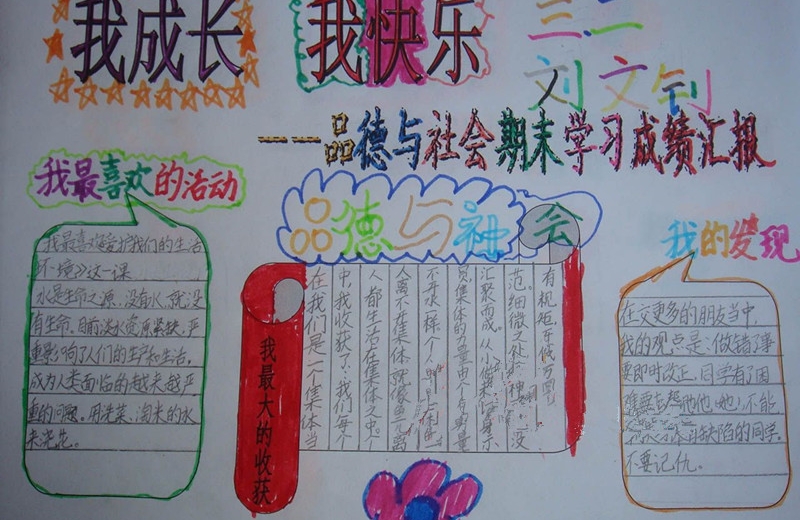 我成长 我快乐
三.二
刘文钊
——品德与社会期末学习成绩汇报
我最喜欢的活动
我最喜欢《爱护我们的生活
环境》这一课
水是生命之源,没有水,就没
有生命。目前淡水资源紧缺,严
重影响了人们的生产和生活,
成为人类面临的越来越严
重的问题。用洗菜、淘米的水
来浇花。
品德与社会
我最大的收获
有规矩,
范。细微之处 神 没
汇聚而成。从小 示
集体的力量由个
不开水一样。个人
会离不开集体,就像鱼儿离
人都生活在集体之中。个
中我收获了:我们每个
在我们是一个集体当
我的发现
在交更多的朋友当中,
我的观点是:做错了事
要即时改正。同学有了困
难要去帮他他(她)不能
有缺陷的同学。
不要记仇。